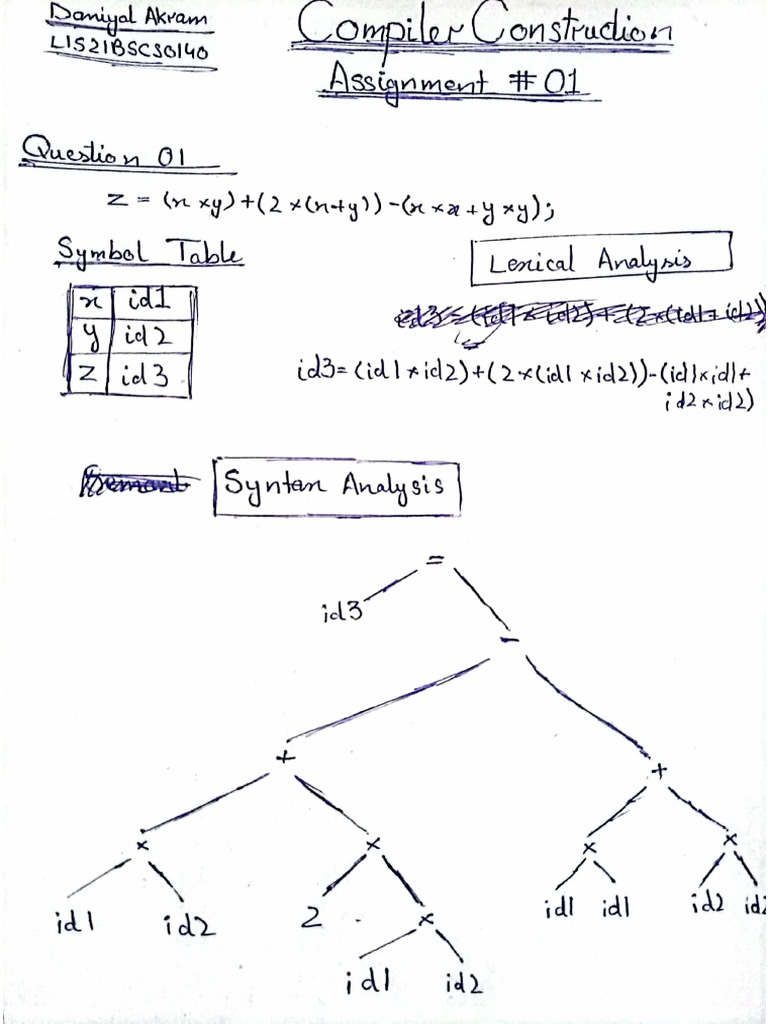 Daniyal Akram
L1S21BSCS0140
Compiler Construction
Assignment # 01
Question 01
z = (x × y) + (2 × (x + y)) - (x × x + y × y);
Symbol Table
x id1
y id2
z id3
Lexical Analysis
id3 = (id1 × id2) + (2 × (id1 × id2)) - (id1 × id1 +
id2 × id2)
Syntax Analysis
=
id3 -
+ +
× × × ×
id1 id2 2 × id1 id1 id2 id2
id1 id2